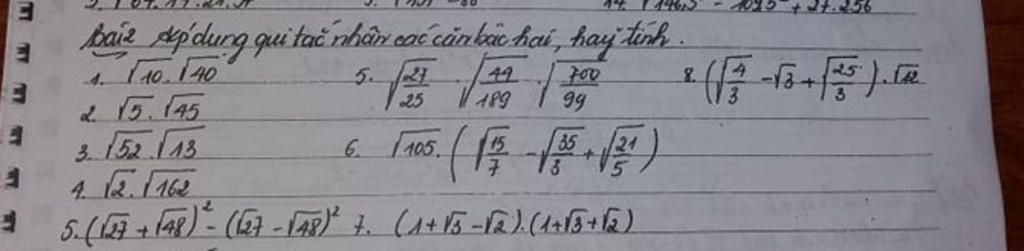 Bài 2 Áp dụng qui tắc nhân các căn bậc hai, hãy tính.
1. √10.√40
5. √(27/25) . √(49/189) . √(700/99)
8. (√(4/3) - √3 + √(25/3)).√12
2. √5.√45
3. √52.√13
6. √105.(√(15/7) - √(35/3) + √(21/5))
4. √2.√162
5. (√27 + √48)² - (√27 - √48)²
7. (1+√3-√2).(1+√3+√2)